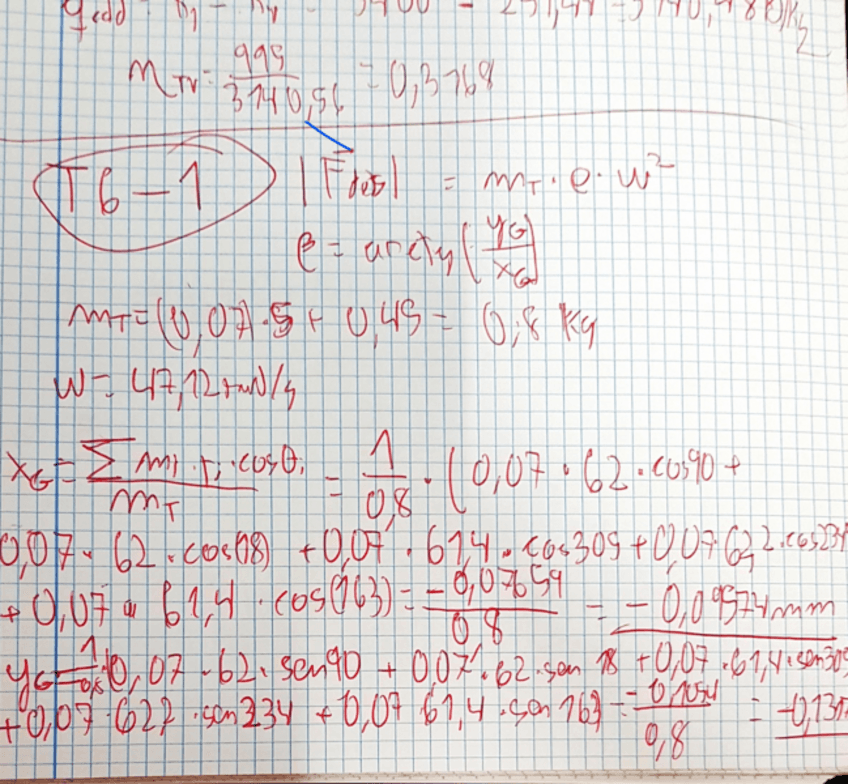 q_add = h1 - h4 = 3400 - 251,44 = 3140,48 kJ/kg
m_TV = 995/3140,56 = 0,3168
T6-1 |F_deb| = m_T · e · w²
β = arctg (y_G/x_G)
m_T = (0,07)·5 + 0,45 = 0,8 kg
w = 47,12 rad/s
x_G = Σ m_i · r_i · cosθ_i / m_T = 1/0,8 · (0,07 · 62 · cos90 +
0,07 · 62 · cos(18) + 0,07 · 61,4 · cos309 + 0,07 · 62,2 · cos234
+ 0,07 · 61,4 · cos(163) = -0,07659/0,8 = -0,09574 mm
y_G = 1/0,8 · (0,07 · 62 · sen90 + 0,07 · 62 · sen 18 + 0,07 · 61,4 · sen309
+ 0,07 · 622 · sen234 + 0,07 61,4 · sen 163 = -0,1054/0,8 = -0,131